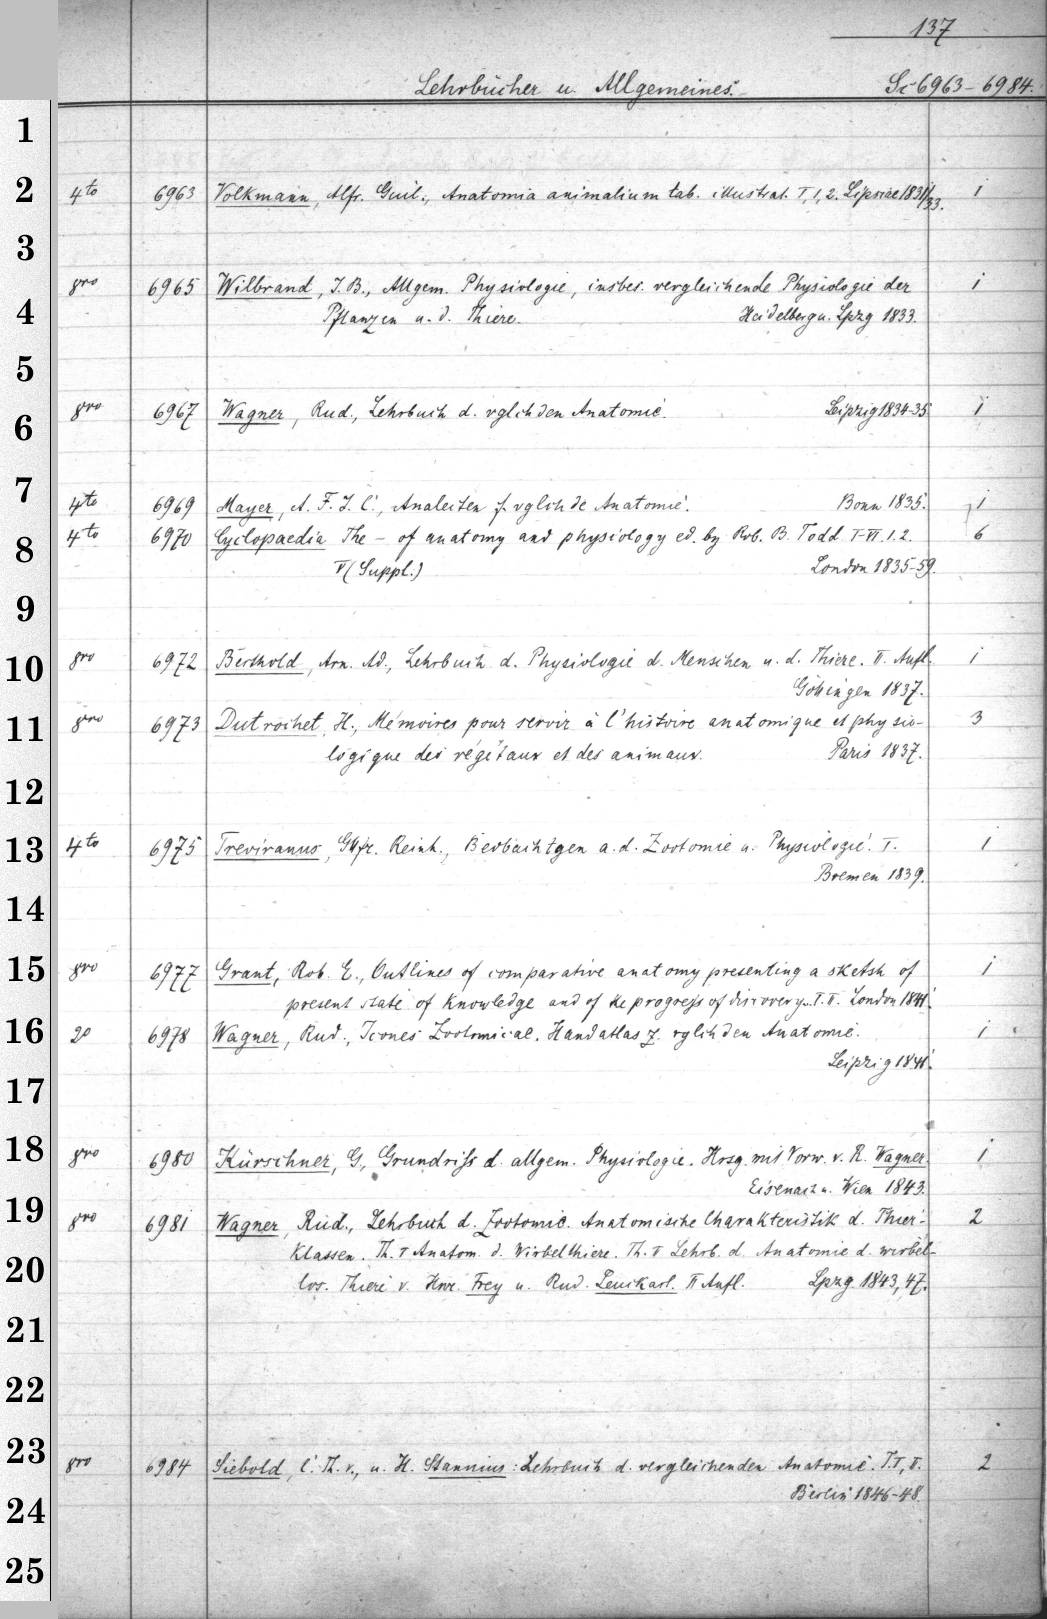 137
Lehrbücher u. Allgemeines. Sc 6963-6984.
1
2 4to 6963 Volkmann, Alfr. Guil., Anatomia animalium tab. illustrat. T. 1, 2. Lipsiae 1831/33. 1
3
8vo 6965 Wilbrand, J. B., Allgem. Physiologie, insbes. vergleichende Physiologie der 1
4 Pflanzen u. d. Thiere. Heidelberg u. Lpzg 1833.
5
6 8vo 6967 Wagner, Rud., Lehrbuch d. vglchden Anatomie. Leipzig 1834-35 1
7 4to 6969 Mayer, A. F. J. C., Analecten f. vglchde Anatomie. Bonn 1835. 1
8 4to 6970 Cyclopaedia The - of anatomy and physiology ed. by Rob. B. Todd I-IV. 1. 2. 6
V (Suppl.) London 1835-59.
9
10 8vo 6972 Berthold, Arn. Ad., Lehrbuch d. Physiologie d. Menschen u. d. Thiere. II. Aufl. 1
Göttingen 1837.
11 8vo 6973 Dutrochet, H., Mémoires pour servir à l'histoire anatomique et physio- 3
logique des végétaux et des animaux. Paris 1837.
12
13 4to 6975 Treviranus, Gttfr. Reinh., Beobachtgen a. d. Zootomie u. Physiologie. I. 1
Bremen 1839.
14
15 8vo 6977 Grant, Rob. E., Outlines of comparative anatomy presenting a sketsh of 1
present state of Knowledge and of the progress of discovery... London 1841.
16 2o 6978 Wagner, Rud., Icones Zootomicae. Handatlas z. vglchden Anatomie. 1
Leipzig 1841.
17
18 8vo 6980 Kürschner, G., Grundriss d. allgem. Physiologie. Hrsg. mit Vorw. v. R. Wagner. 1
Eisenach u. Wien 1843.
19 8vo 6981 Wagner, Rud., Lehrbuch d. Zootomie. Anatomische Charakteristik d. Thier- 2
Klassen. Th. I Anatom. d. Wirbelthiere. Th. II Lehrb. d. Anatomie d. wirbel-
20 los. Thiere v. Hnr. Frey u. Rud. Leuckart. II Aufl. Lpzg. 1843, 47.
21
22
23 8vo 6984 Siebold, C. Th. v., u. H. Stannius: Lehrbuch d. vergleichenden Anatomie. T. I, II. 2
24 Berlin 1846-48
25